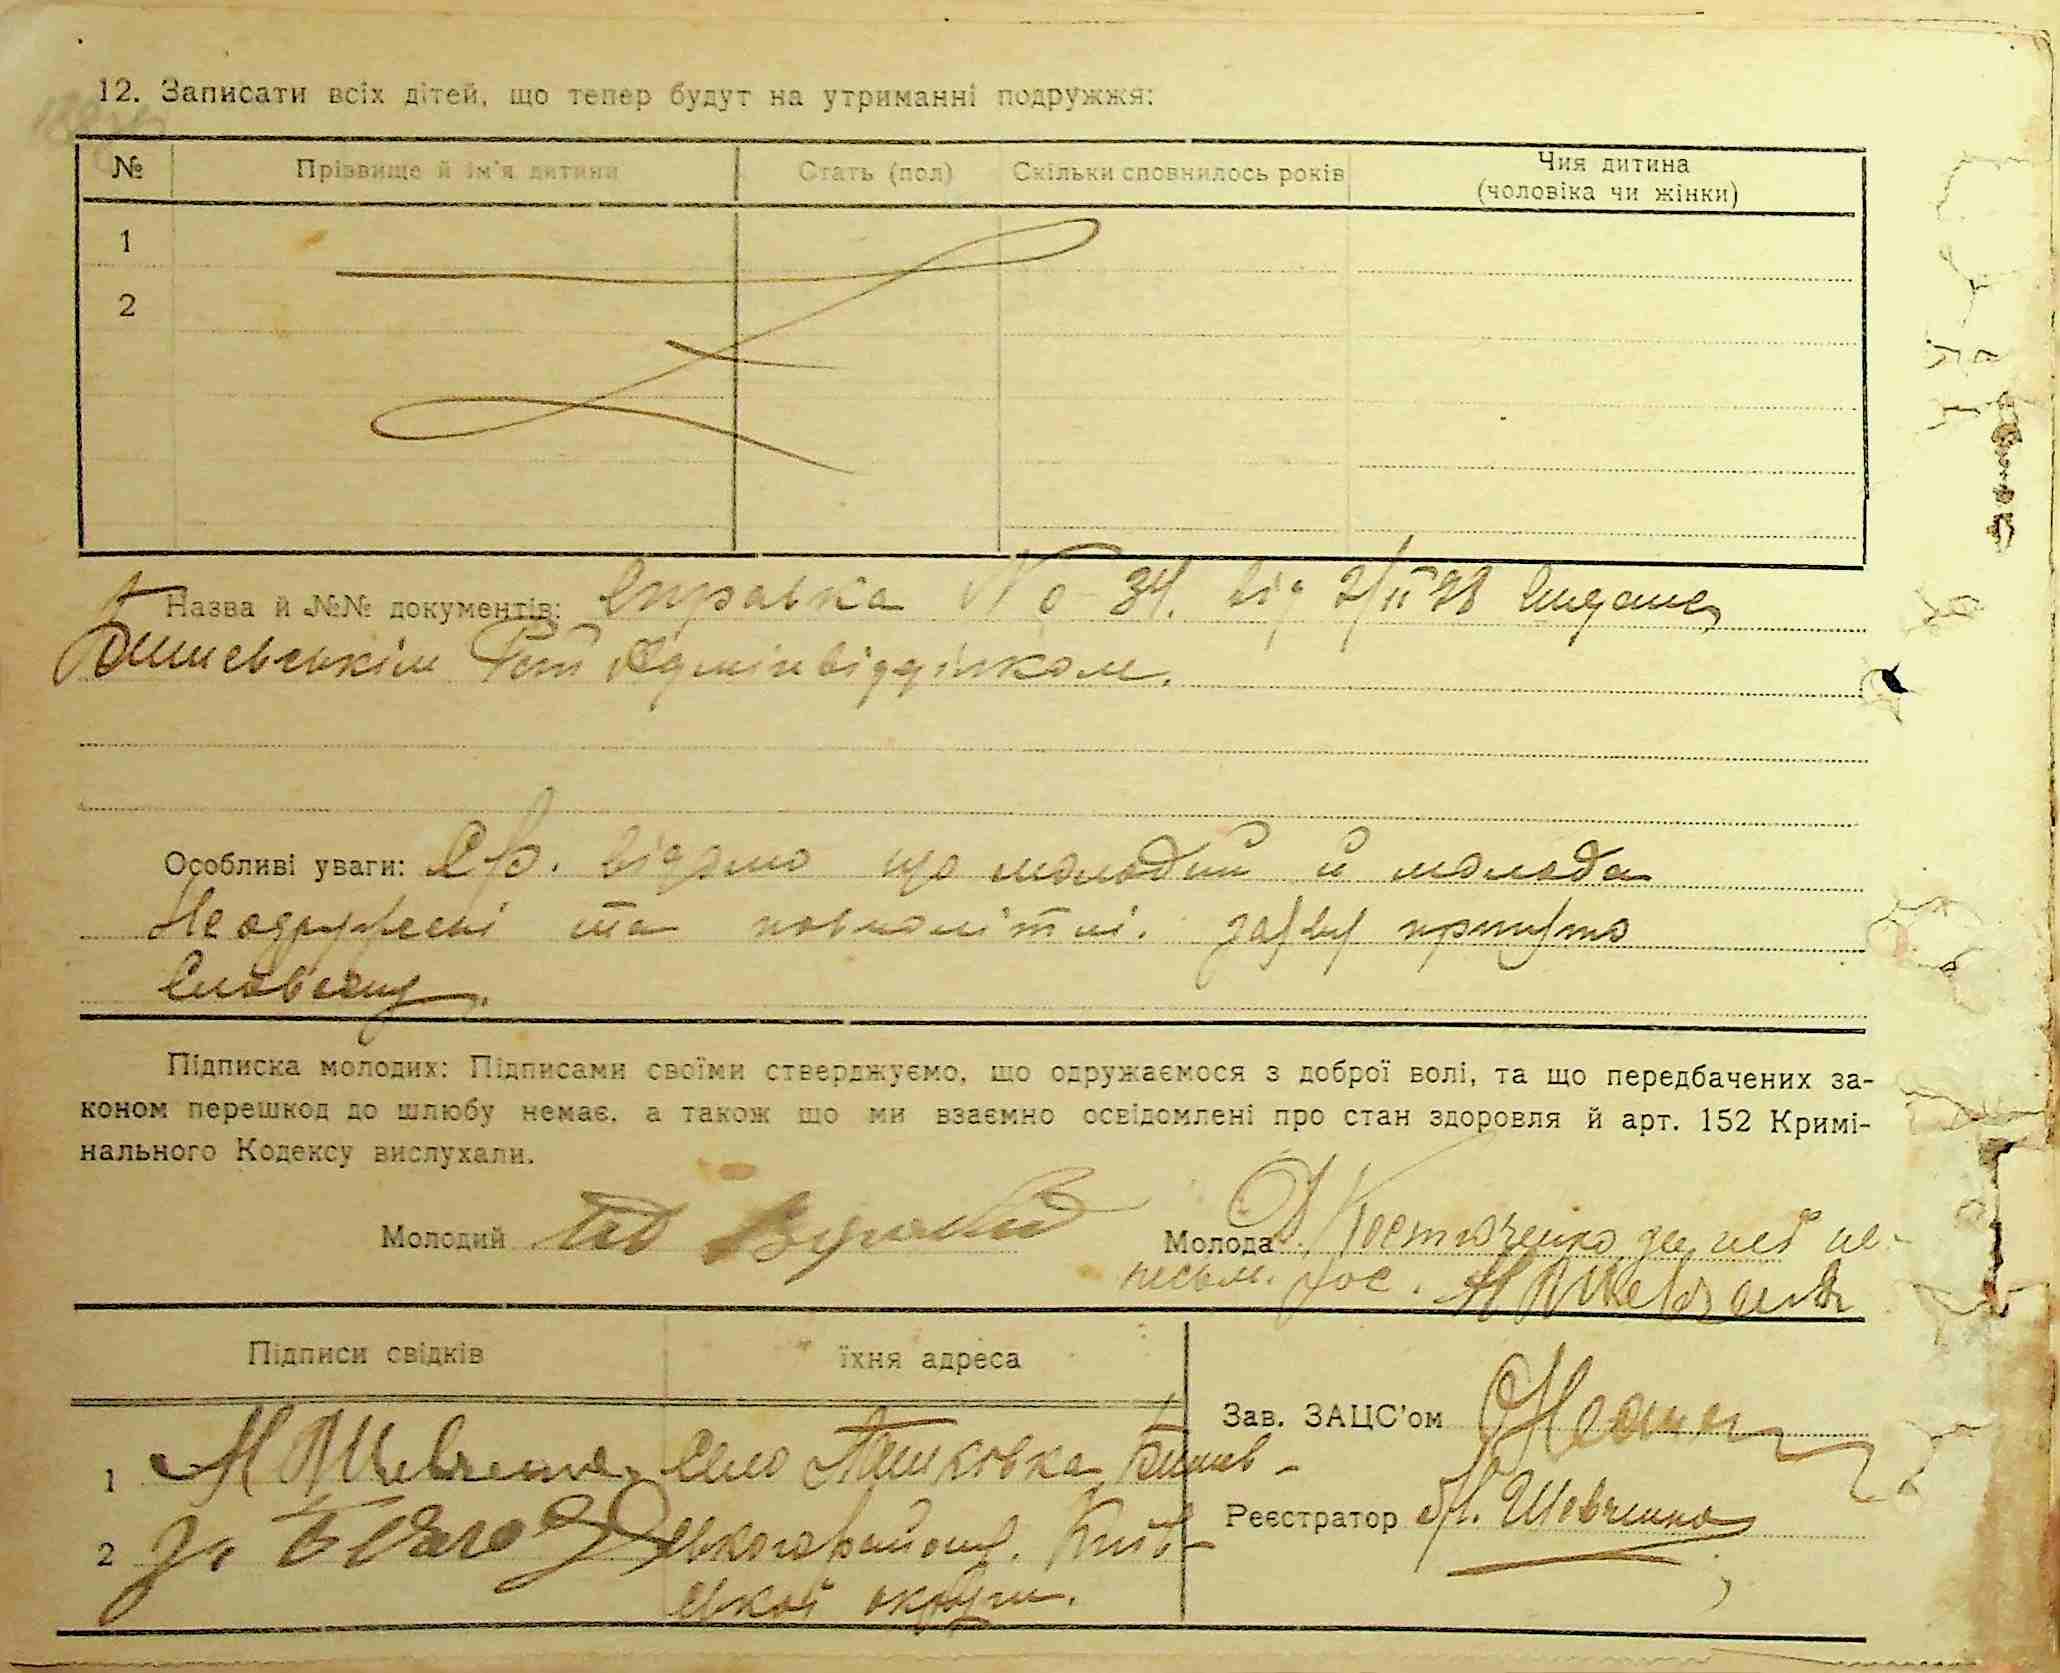 12. Записати всіх дітей, що тепер будут на утриманні подружжя:
№ Прізвище й ім'я дитини Стать (пол) Скільки сповнилось років Чия дитина
(чоловіка чи жінки)
1
2
Назва й №№ документів: Справка № 34. від 2/II 28 видана
Бишевським Рай Адмінвідділком.
Особливі уваги: відомо що молодий й молода
Не одружені та повнолітні. заяву принято
Словесну.
Підписка молодих: Підписами своїми стверджуємо, що одружаємося з доброї волі, та що передбачених за-
коном перешкод до шлюбу немає, а також що ми взаємно освідомлені про стан здоровля й арт. 152 Кримі-
нального Кодексу вислухали.
Молодий Молода Костюченко за неї не-
письм. рос. М Шевченко
Підписи свідків їхня адреса
Зав. ЗАЦС'ом
1 М Шевченко Село Пашковка, Бишев-
Реєстратор М. Шевченко
2 ського району. Київ-
ської округи.